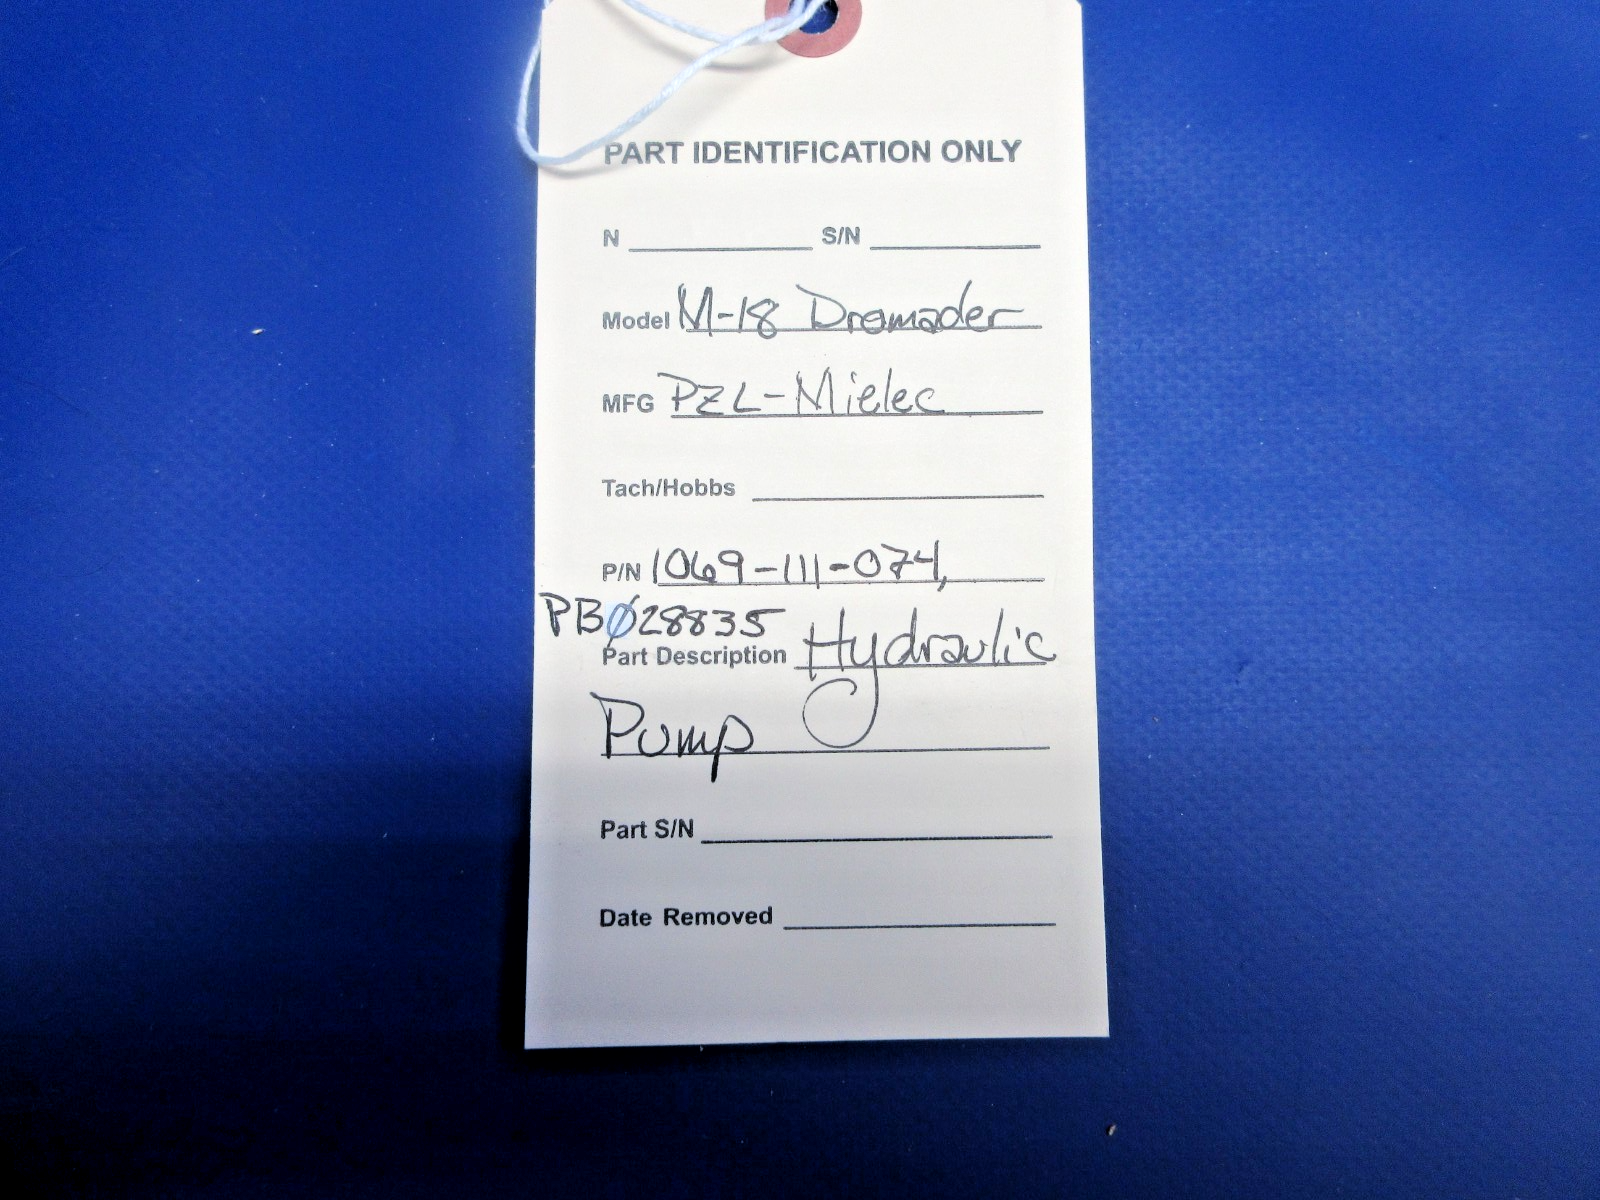 PART IDENTIFICATION ONLY
N ____________ S/N ____________
Model M-18 Dromader
MFG PZL-Mielec
Tach/Hobbs ____________
P/N 1069-111-074,
PBØ28835
Part Description Hydraulic
Pump
Part S/N ____________
Date Removed ____________